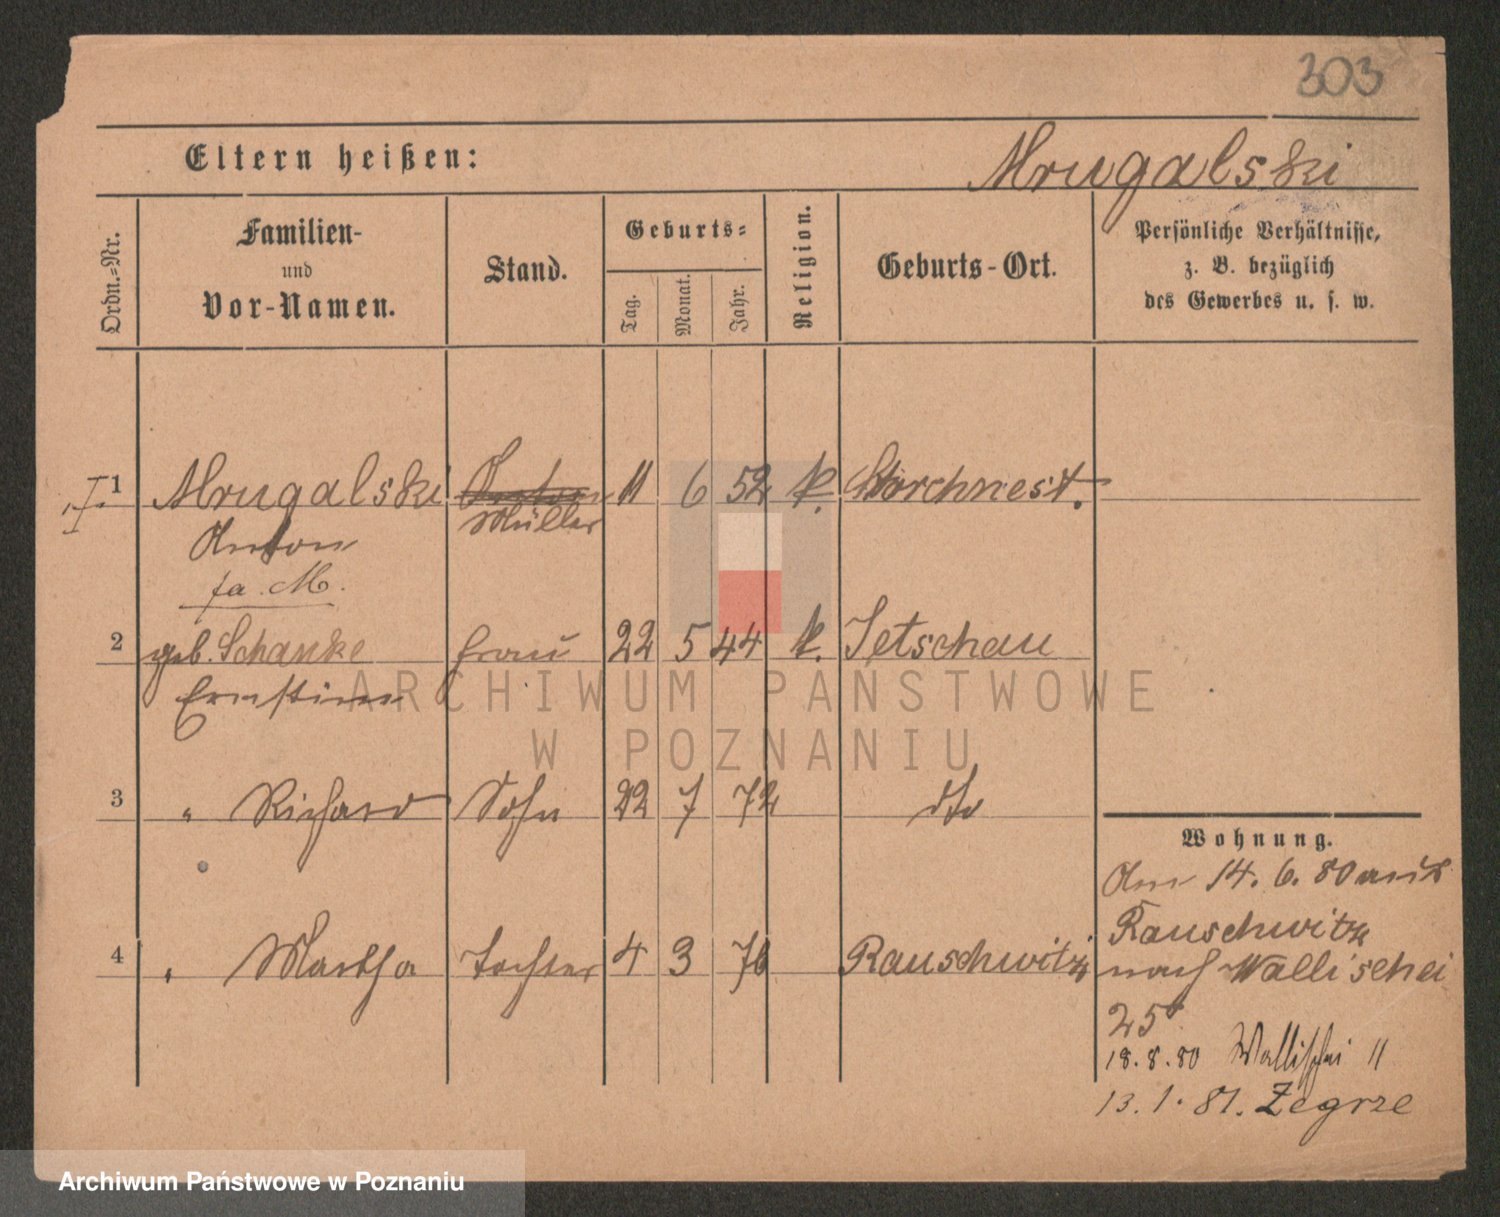 303
Eltern heißen:
Mrugalski
Ordn.=Nr.
Familien-
und
Vor-Namen.
Stand.
Geburts=
Tag.
Monat.
Jahr.
Religion.
Geburts-Ort.
Persönliche Verhältnisse,
z. B. bezüglich
des Gewerbes u. s. w.
1 Mrugalski Anton 11 6 52 k. Storchnest.
Anton Müller
fa. M.
2 geb. Schanke Frau 22 5 44 k. Jetschau
Ernstine
3 " Richard Sohn 22 7 72 dto
4 " Martha Tochter 4 3 76 Rauschwitz
Wohnung.
Am 14. 6. 80 aus
Rauschwitz
nach Wallischei
25.
18. 8. 80 Wallischei 11
13. 1. 81. Zegrze
ARCHIWUM PAŃSTWOWE
W POZNANIU
Archiwum Państwowe w Poznaniu